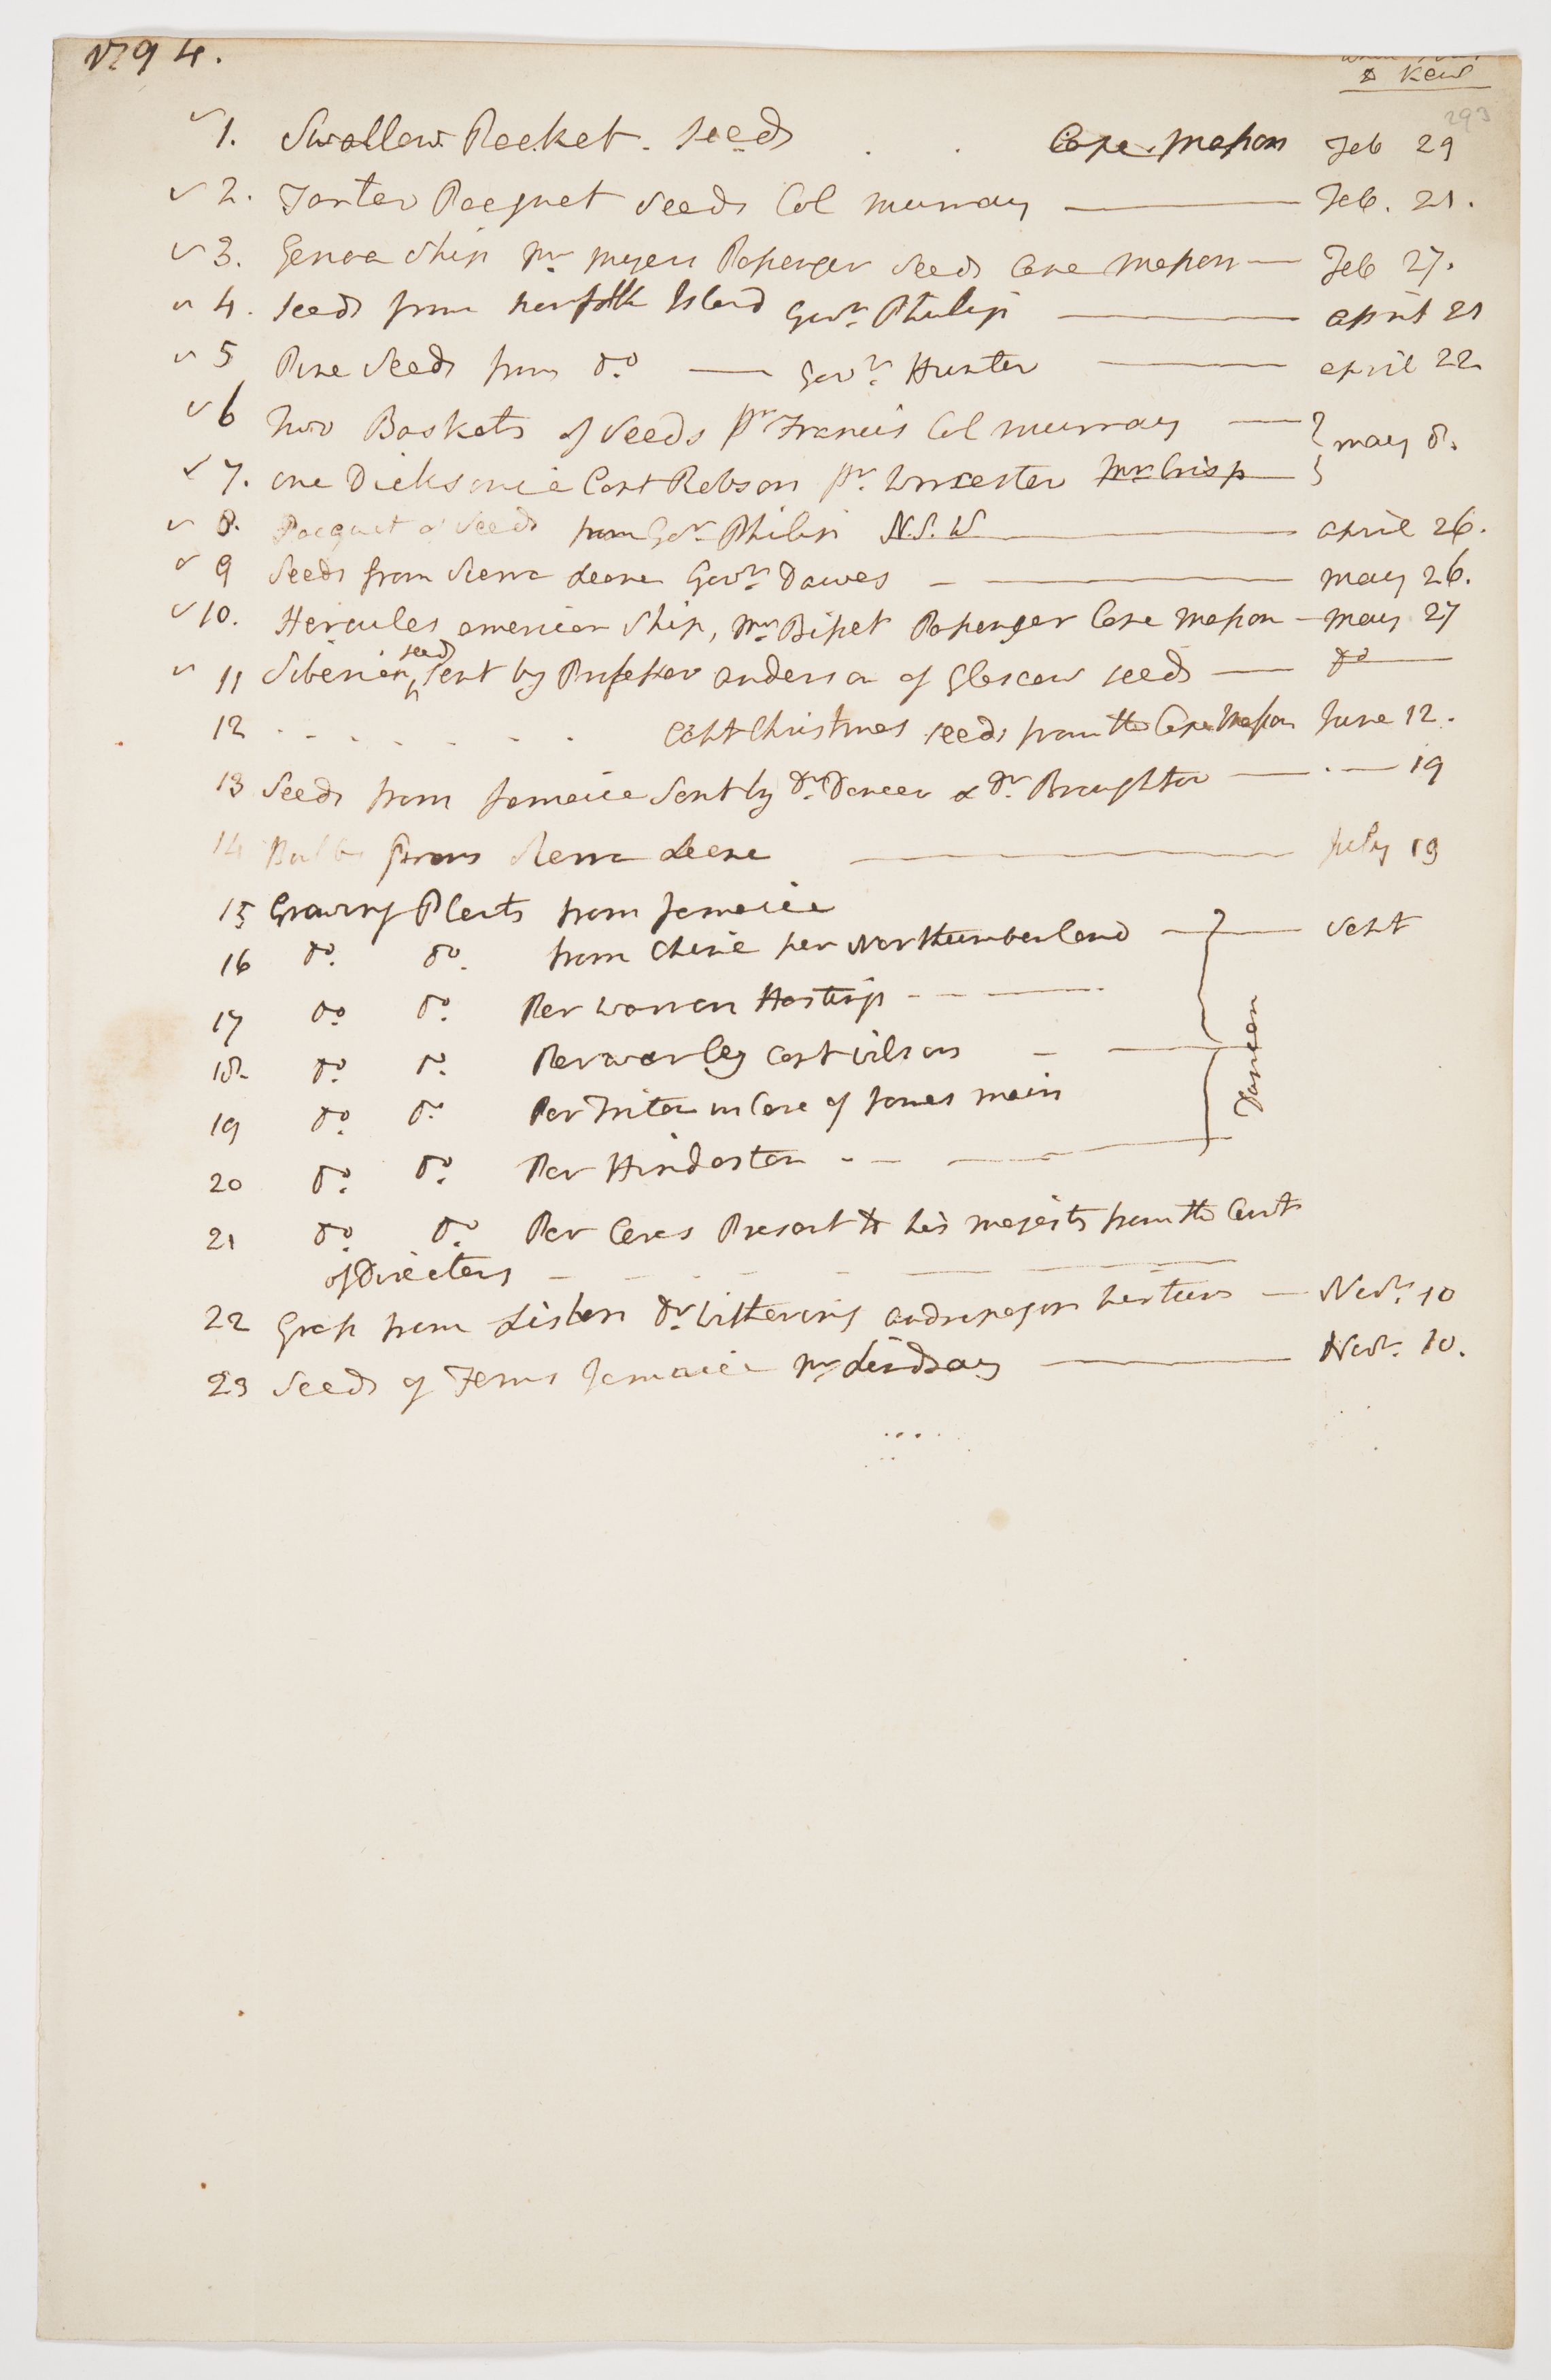 1794.
to Kew
293
1. Swallow Packet. Seeds . . Cape. Masson Feb 29
2. Tarter Pacquet Seeds Col Murray — Feb. 21.
3. Genoa Ship Mr. Meyers Passenger Seeds Cape Masson — Feb 27.
4. Seeds from Norfolk Island Govr. Philip — April 21
5 Pine Seeds from Do. — Govr. Hunter — april 22
6 Two Baskets of Seeds pr Francis Col Murray — } may 8.
7. one Dicksonia Capt Robson pr. Worcester Mr Crisp }
8. Pacquet of Seeds from Gor. Philip N.S.W. — april 26.
9 Seeds from Sierra Leone Govr. Dawes — may 26.
10. Hercules american Ship, Mr. Bisset Passenger Cape Masson — may 27
11 Siberian seeds sent by Professor Anderson of Glascow seeds — Do
12 . . . . . . . Capt Christmas seeds from the Cape Masson June 12.
13 Seeds from Jamaica Sent by Dr. Dancer & Dr. Broughton — . — 19
14 Bulbs from Sierra Leone — July 19
15 Growing Plants from Jamaica
16 Do. Do. from China per Northumberland — Sept
17 Do. Do. Per Warren Hastings - - —
18. Do. Do. Per warley Capt Wilson — —
19 Do. Do. Per Triton in Care of James Main
20 Do. Do. Per Hindostan - — —
21 Do. Do. Per Ceres Present to his majesty from the Court
of Directors — — — —
22 Grass from Lisbon Dr. Withering andropogon hirtum — Novr. 10
23 Seeds of Ferns Jamaica Mr Lindsay — Novr. 10.